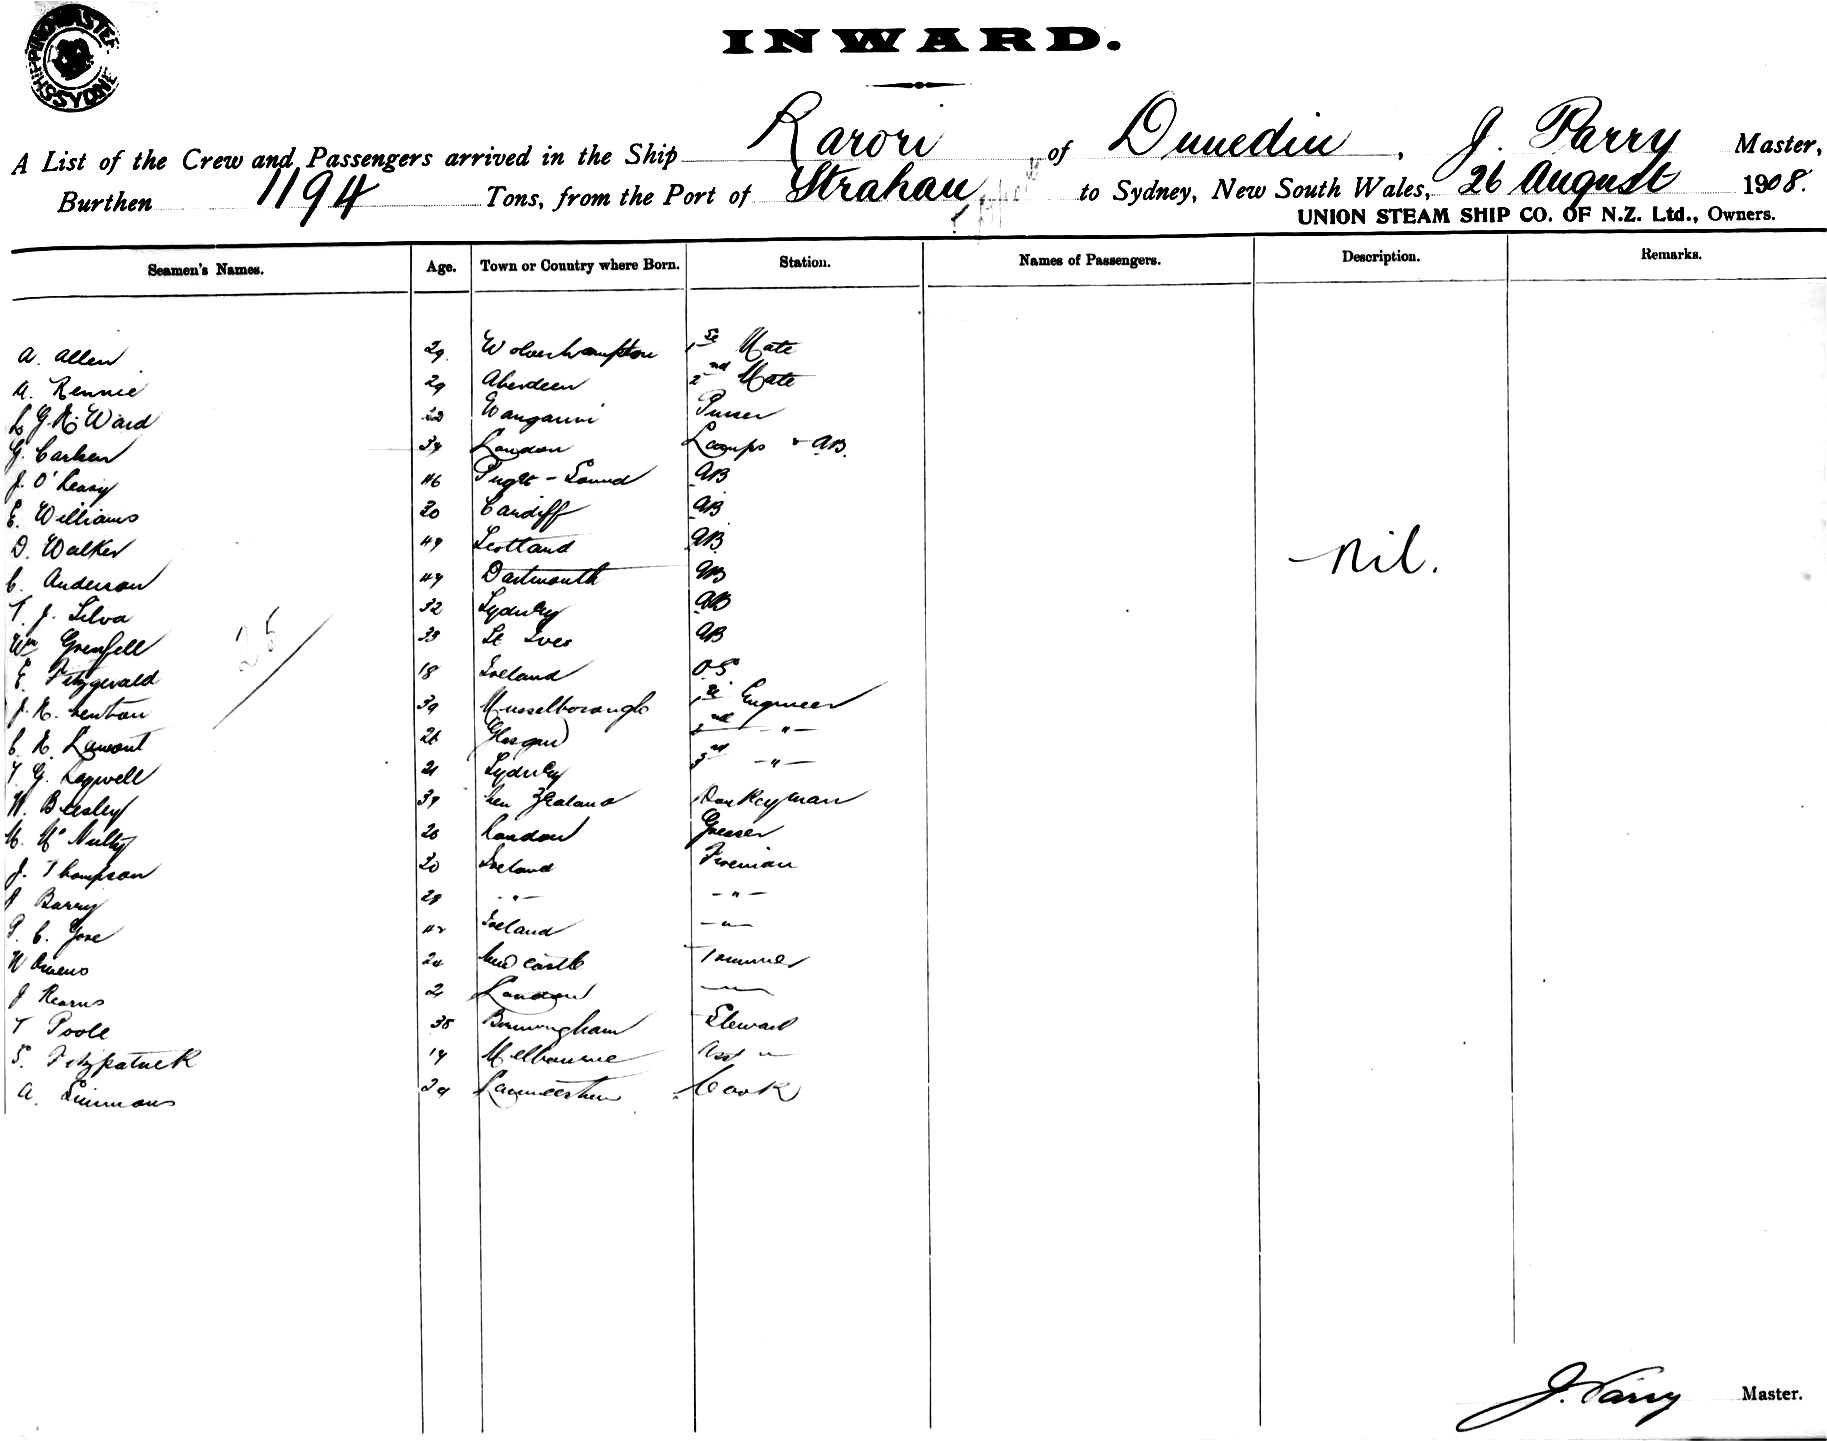 INWARD.
A List of the Crew and Passengers arrived in the Ship Karori of Dunedin, J. Parry Master,
Burthen 1194 Tons, from the Port of Strahan to Sydney, New South Wales, 26 August 1908.
UNION STEAM SHIP CO. OF N.Z. Ltd., Owners.
Seamen's Names. Age. Town or Country where Born. Station. Names of Passengers. Description. Remarks.
A. Allen 29 Wolverhampton 1st Mate
A. Rennie 29 Aberdeen 2nd Mate
L G. R. Ward 22 Wanganui Purser
G. Carlsen 34 London Lamps & AB.
J. O'Leary 46 Puget-Sound AB
E. Williams 30 Cardiff AB
D. Walker 49 Scotland AB
C. Anderson 49 Dartmouth AB
nil.
T. J. Silva 32 Sydney AB
Wm Grenfell 33 St Ives AB
25
E. Fitzgerald 18 Ireland O.S
J. R. Newton 39 Musselborough 1st Engineer
C. R. Lamont 26 Glasgow 2nd -"-
T. G. Sagwell 21 Sydney 3rd -"-
W. Beesley 39 New Zealand Donkeyman
M. McNulty 26 London Greaser
J. Thompson 30 Ireland Fireman
Barry 29 -"- -"-
P. C. Gore 42 Ireland -"-
W Owens 24 New castle Trimmer
J Kearns 21 London -"-
T Poole 38 Birmingham Steward
S. Fitzpatrick 19 Melbourne Asst -"-
A. Simmons 29 Launceston Cook
J. Parry Master.